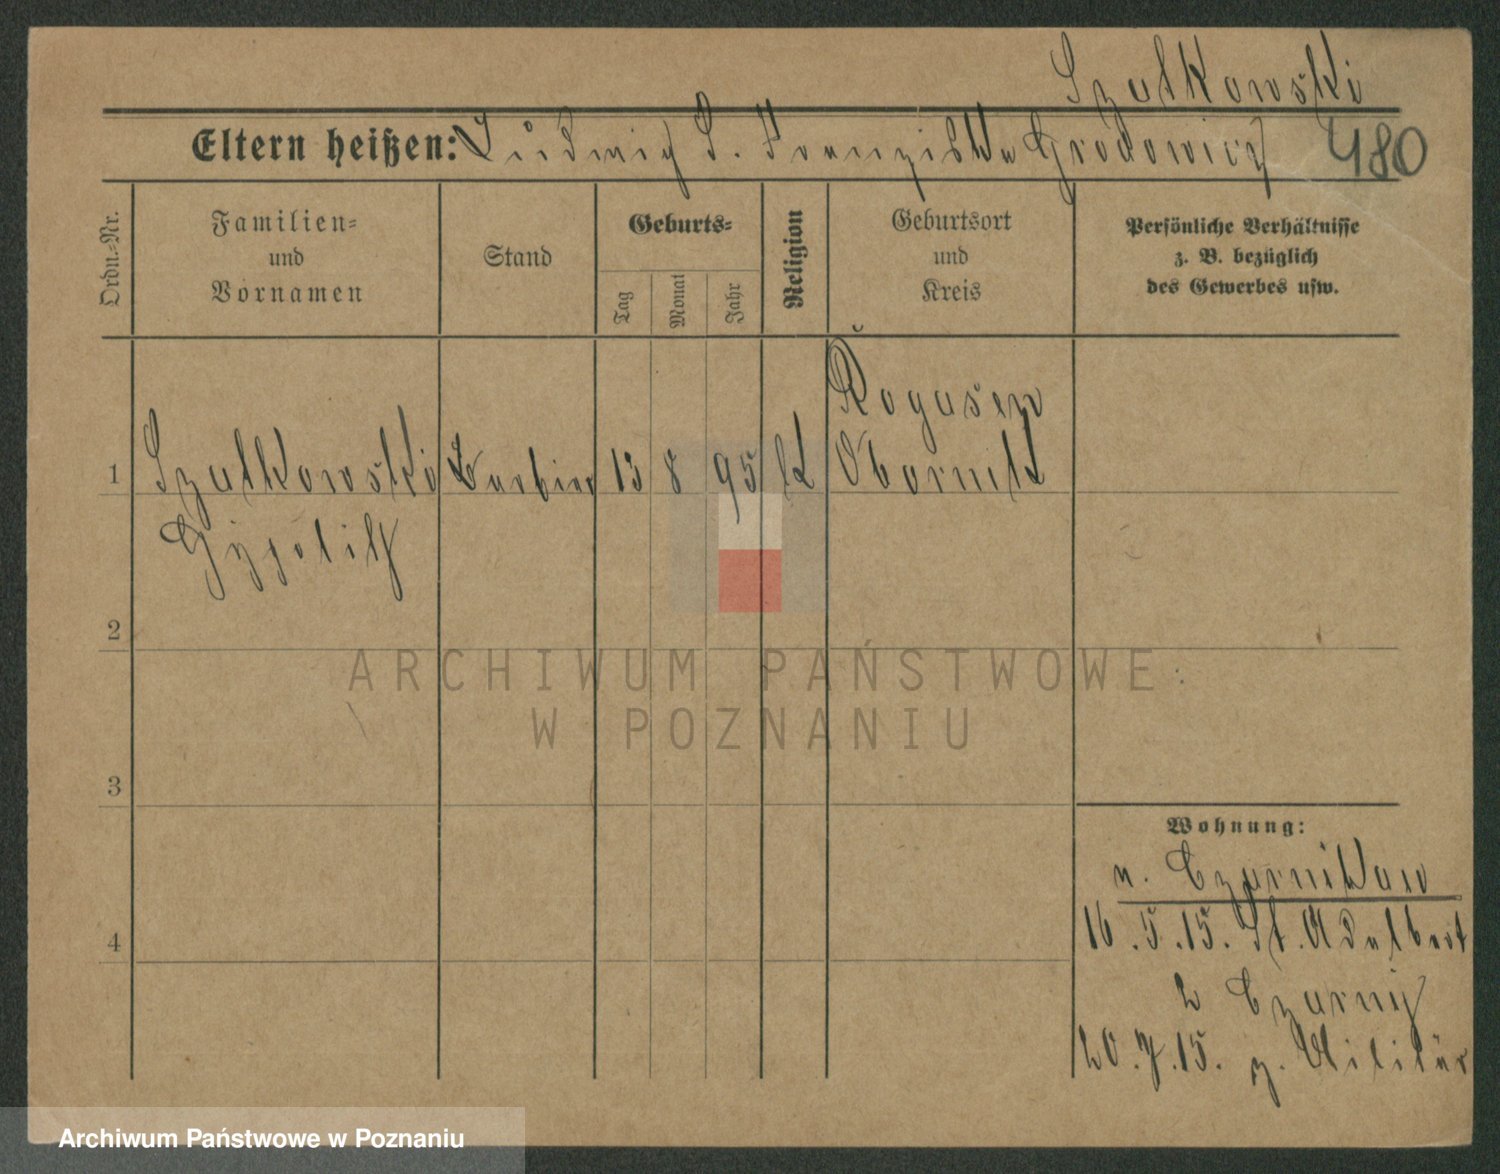 Szatkowski
Eltern heißen: Ludwig S. Franziska Grodowicz 480
Ordn.-Nr.
Familien-
und
Vornamen
Stand
Geburts-
Tag
Monat
Jahr
Religion
Geburtsort
und
Kreis
Persönliche Verhältnisse
z. B. bezüglich
des Gewerbes usw.
Rogasen
1 Szatkowski Barbier 13 8 95 K Obornik
Hypolith
2
ARCHIWUM PAŃSTWOWE
W POZNANIU
3
Wohnung:
n. Czarnikau
16.5.15. St. Adalbert
4
2 Czarny
20.7.15. z. Militär
Archiwum Państwowe w Poznaniu